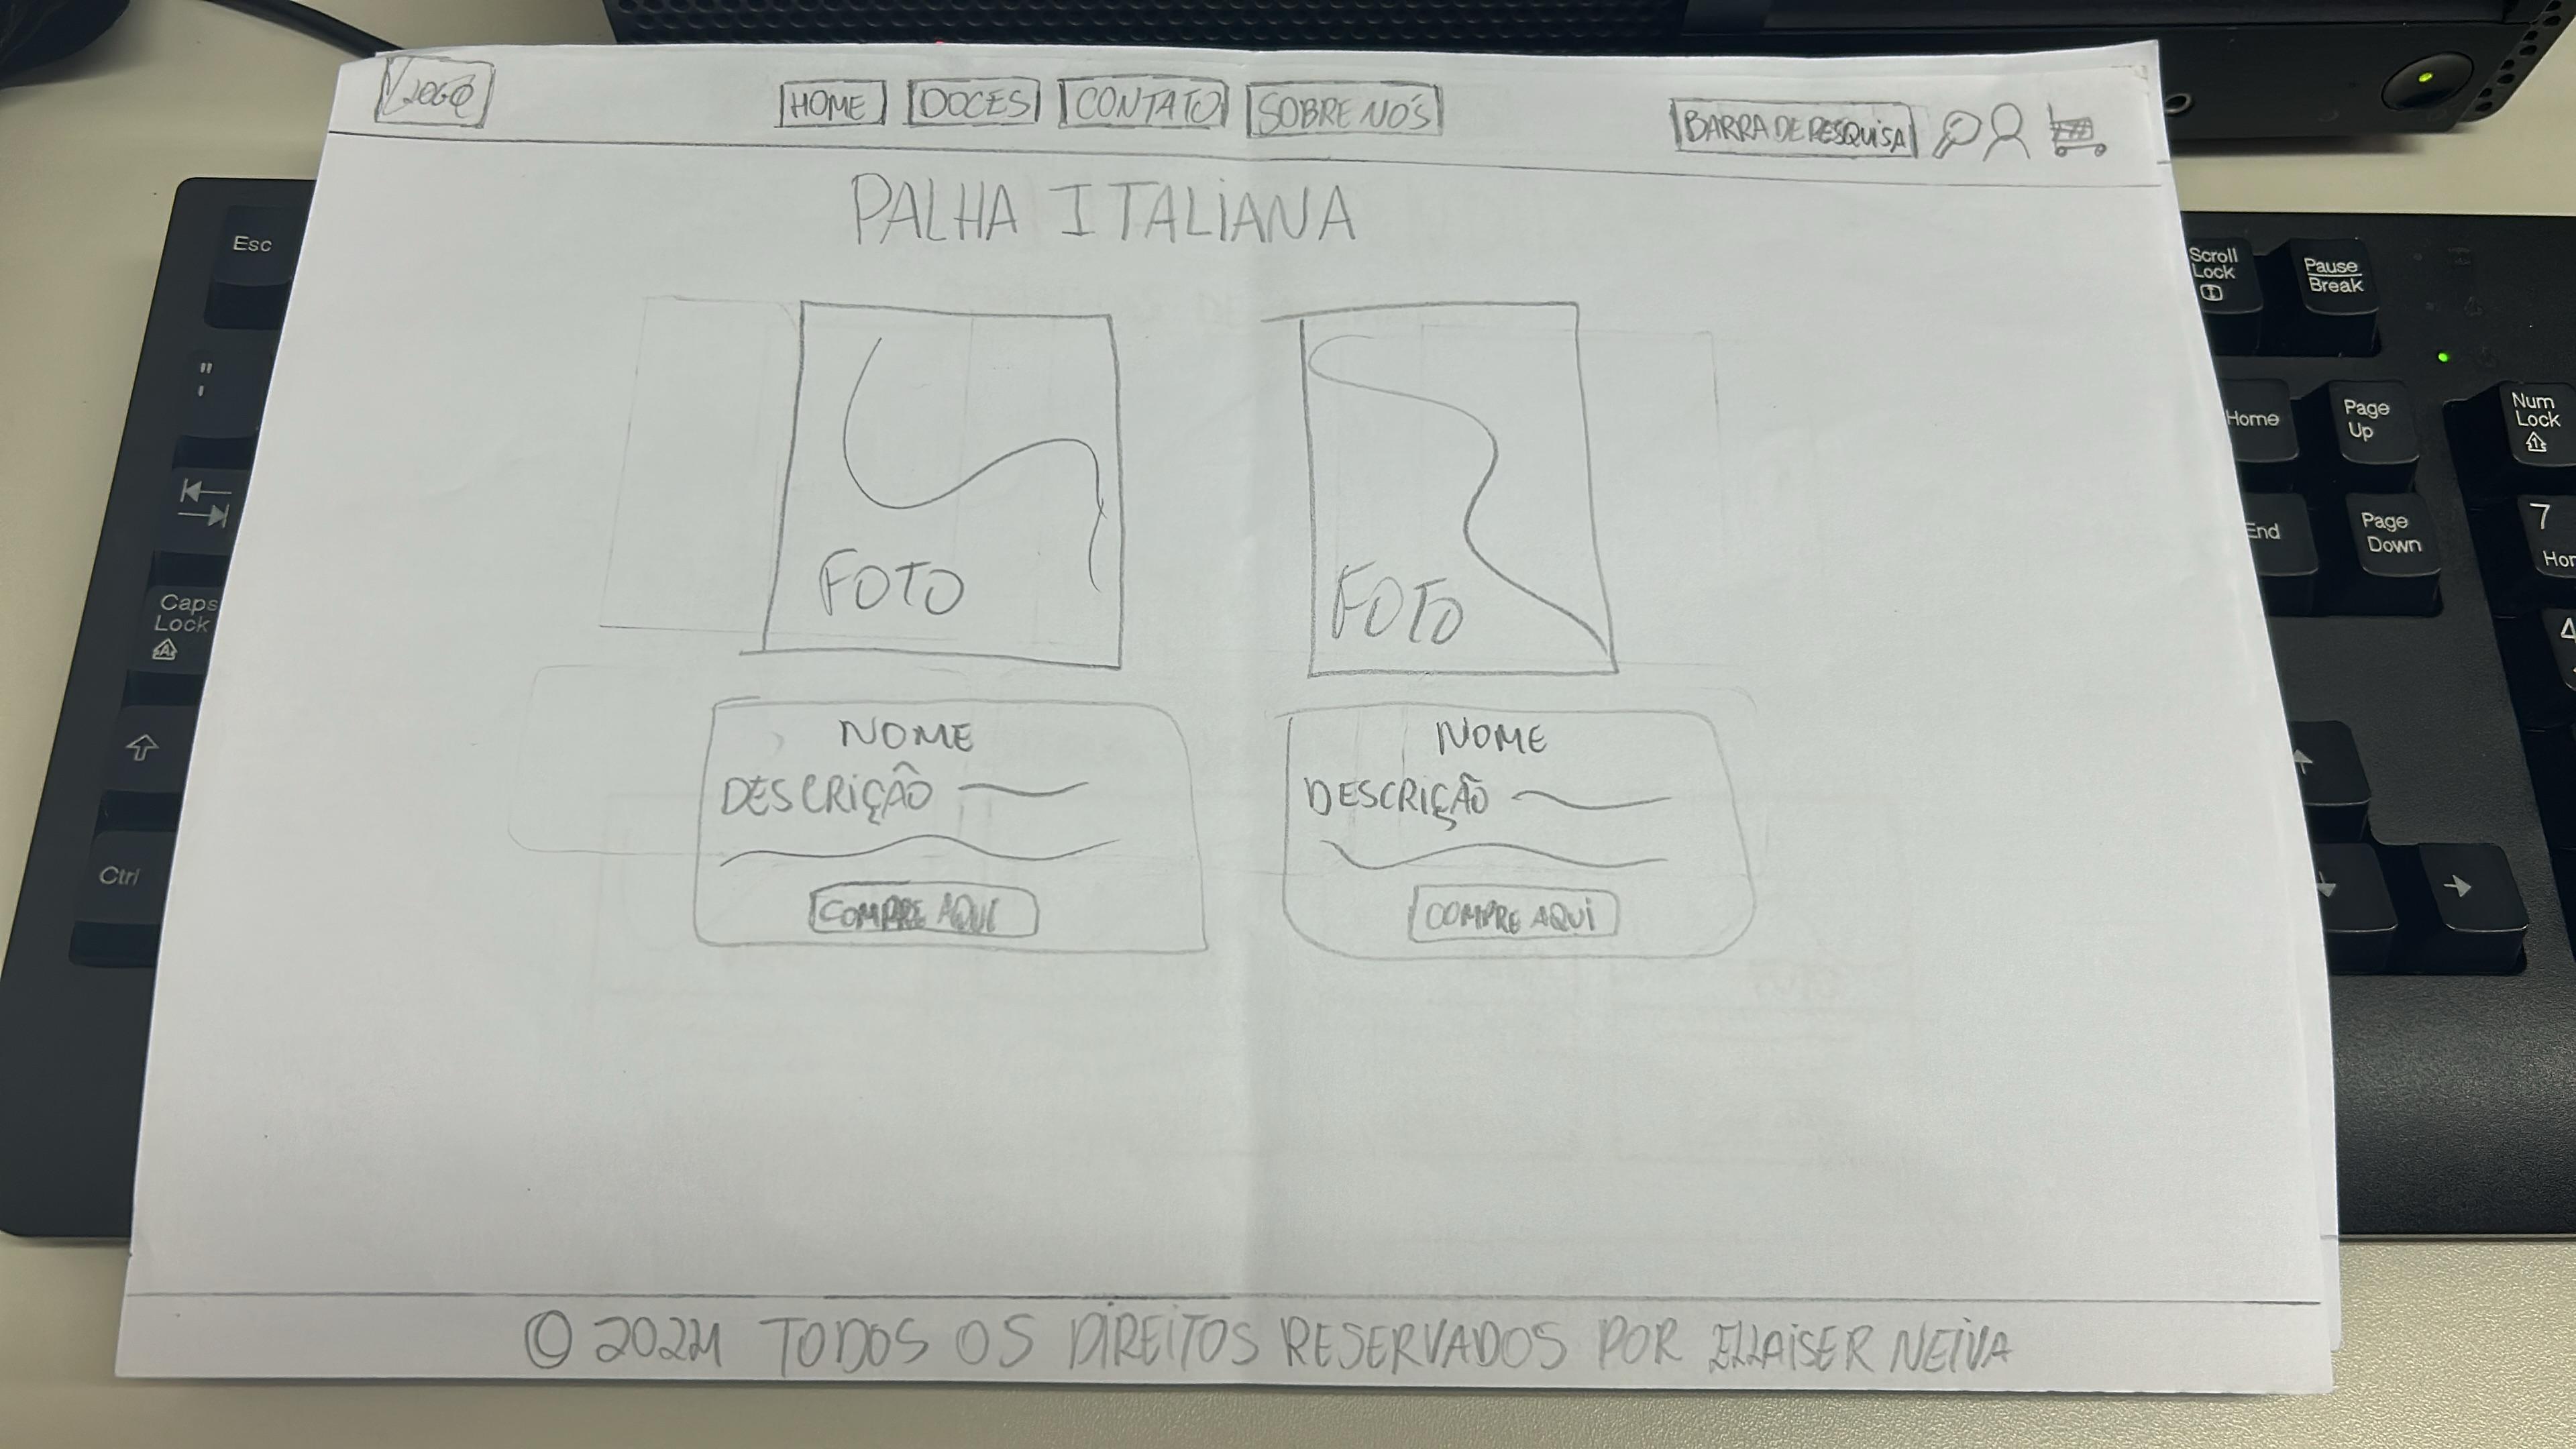 LOGO
HOME DOCES CONTATO SOBRE NÓS
BARRA DE PESQUISA
PALHA ITALIANA
FOTO
FOTO
NOME
DESCRIÇÃO
COMPRE AQUI
NOME
DESCRIÇÃO
COMPRE AQUI
© 2024 TODOS OS DIREITOS RESERVADOS POR ELLAISER NEIVA
Esc
"
'
Caps
Lock
A
Ctrl
Scroll
Lock
Pause
Break
Home
Page
Up
Num
Lock
1
End
Page
Down
7
4